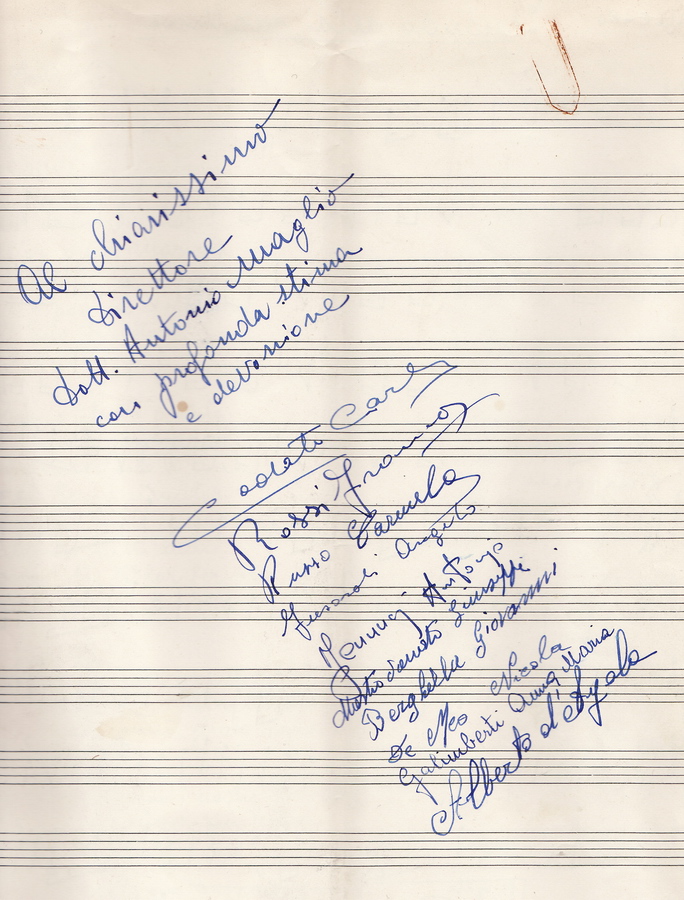 Al chiarissimo
Direttore
Dott. Antonio Maglio
con profonda stima
e devozione
Rossi Franco
Russo Carmela
Angelo
Antonio
Mastrodonato Giuseppe
Berghella Giovanni
De Meo Nicola
Galimberti Anna Maria
Alberto d'Ayala